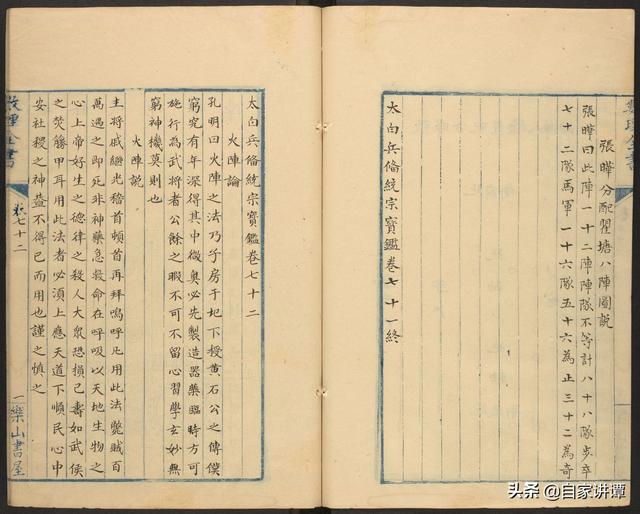 張曄分配瞿塘八陣圖説
張曄曰此陣一十二陣陣隊不等計八十八隊步卒
七十二隊馬軍一十六隊五十六為正三十二為奇
太白兵備統宗寶鑑卷七十一終
太白兵備統宗寶鑑卷七十二
火陣論
孔明曰火陣之法乃子房于圯下授黃石公之傳僕
窮究有年深得其中微奥必先製造器藥臨時方可
施行為武將者公餘之暇不可不留心習學玄妙無
窮神機莫測也
火陣説
主將戚繼光稽首頓首再拜嗚呼凡用此法斃賊百
萬遇之即死非神藥急救命在呼吸以天地生物之
心上帝好生之德律之殺人大衆恐損己壽如武侯
之焚籐甲耳用此法者必須上應天道下順民心中
安社稷之神益不得已而用也謹之慎之
卷七十二
一樂山書屋
头条 @自家讲谭